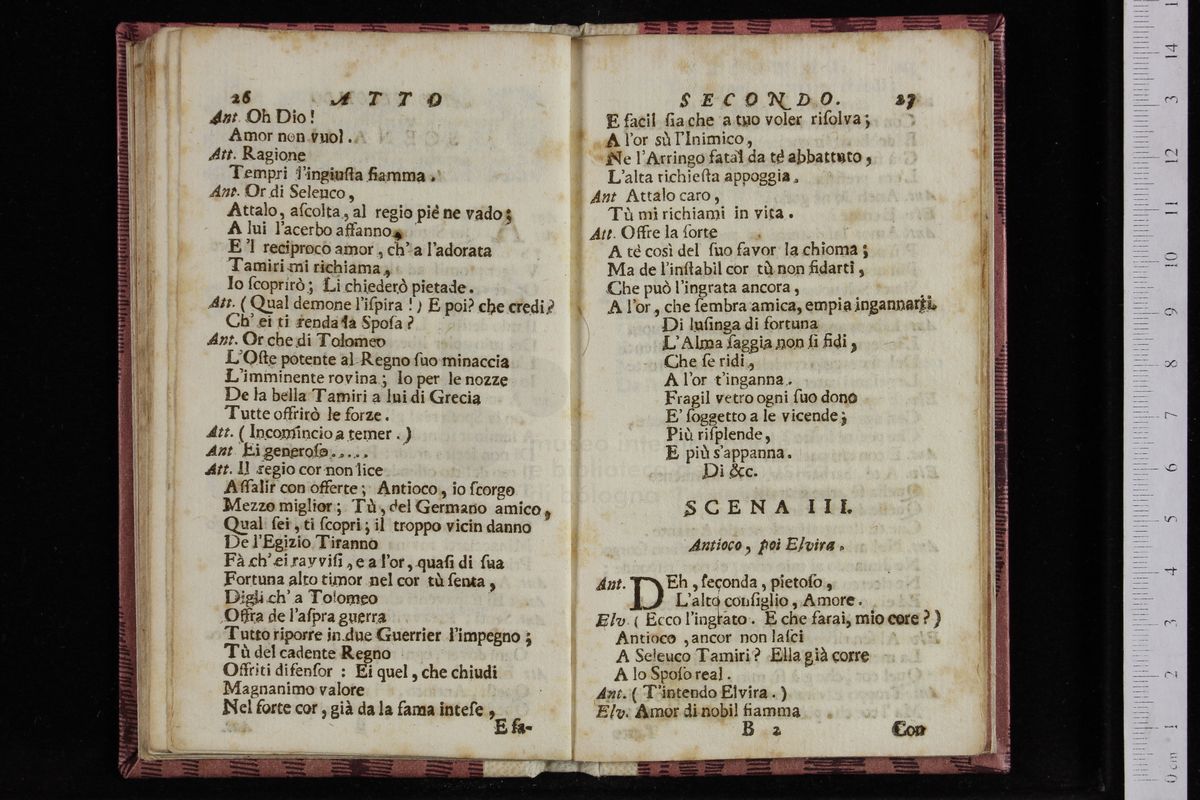 26 ATTO
Ant. Oh Dio!
Amor non vuol.
Att. Ragione
Tempri l'ingiuſta fiamma.
Ant. Or di Seleuco,
Attalo, aſcolta, al regio piè ne vado;
A lui l'acerbo affanno,
E 'l reciproco amor, ch' a l'adorata
Tamiri mi richiama,
Io ſcoprirò; Li chiederò pietade.
Att. (Qual demone l'iſpira!) E poi? che credi?
Ch' ei ti renda la Spoſa?
Ant. Or che di Tolomeo
L'Oſte potente al Regno ſuo minaccia
L'imminente rovina; Io per le nozze
De la bella Tamiri a lui di Grecia
Tutte offrirò le forze.
Att. (Incomincio a temer.)
Ant Ei generoſo.....
Att. Il regio cor non lice
Aſſalir con offerte; Antioco, io ſcorgo
Mezzo miglior; Tù, del Germano amico,
Qual ſei, ti ſcopri; il troppo vicin danno
De l'Egizio Tiranno
Fà ch' ei ravviſi, e a l'or, quaſi di ſua
Fortuna alto timor nel cor tù ſenta,
Digli ch' a Tolomeo
Offra de l'aſpra guerra
Tutto riporre in due Guerrier l'impegno;
Tù del cadente Regno
Offriti difenſor: Ei quel, che chiudi
Magnanimo valore
Nel forte cor, già da la fama inteſe,
E fa-
SECONDO. 27
E facil ſia che a tuo voler riſolva;
A l'or sù l'Inimico,
Ne l'Arringo fatal da tè abbattuto,
L'alta richieſta appoggia.
Ant Attalo caro,
Tù mi richiami in vita.
Att. Offre la ſorte
A tè così del ſuo favor la chioma;
Ma de l'inſtabil cor tù non fidarti,
Che può l'ingrata ancora,
A l'or, che ſembra amica, empia ingannarti.
Di luſinga di fortuna
L'Alma ſaggia non ſi fidi,
Che ſe ridi,
A l'or t'inganna.
Fragil vetro ogni ſuo dono
E' ſoggetto a le vicende;
Più riſplende,
E più s'appanna.
Di &c.
SCENA III.
Antioco, poi Elvira.
Ant. DEh, ſeconda, pietoſo,
L'alto conſiglio, Amore.
Elv. (Ecco l'ingrato. E che farai, mio core?)
Antioco, ancor non laſci
A Seleuco Tamiri? Ella già corre
A lo Spoſo real.
Ant. (T'intendo Elvira.)
Elv. Amor di nobil fiamma
B 2 Con